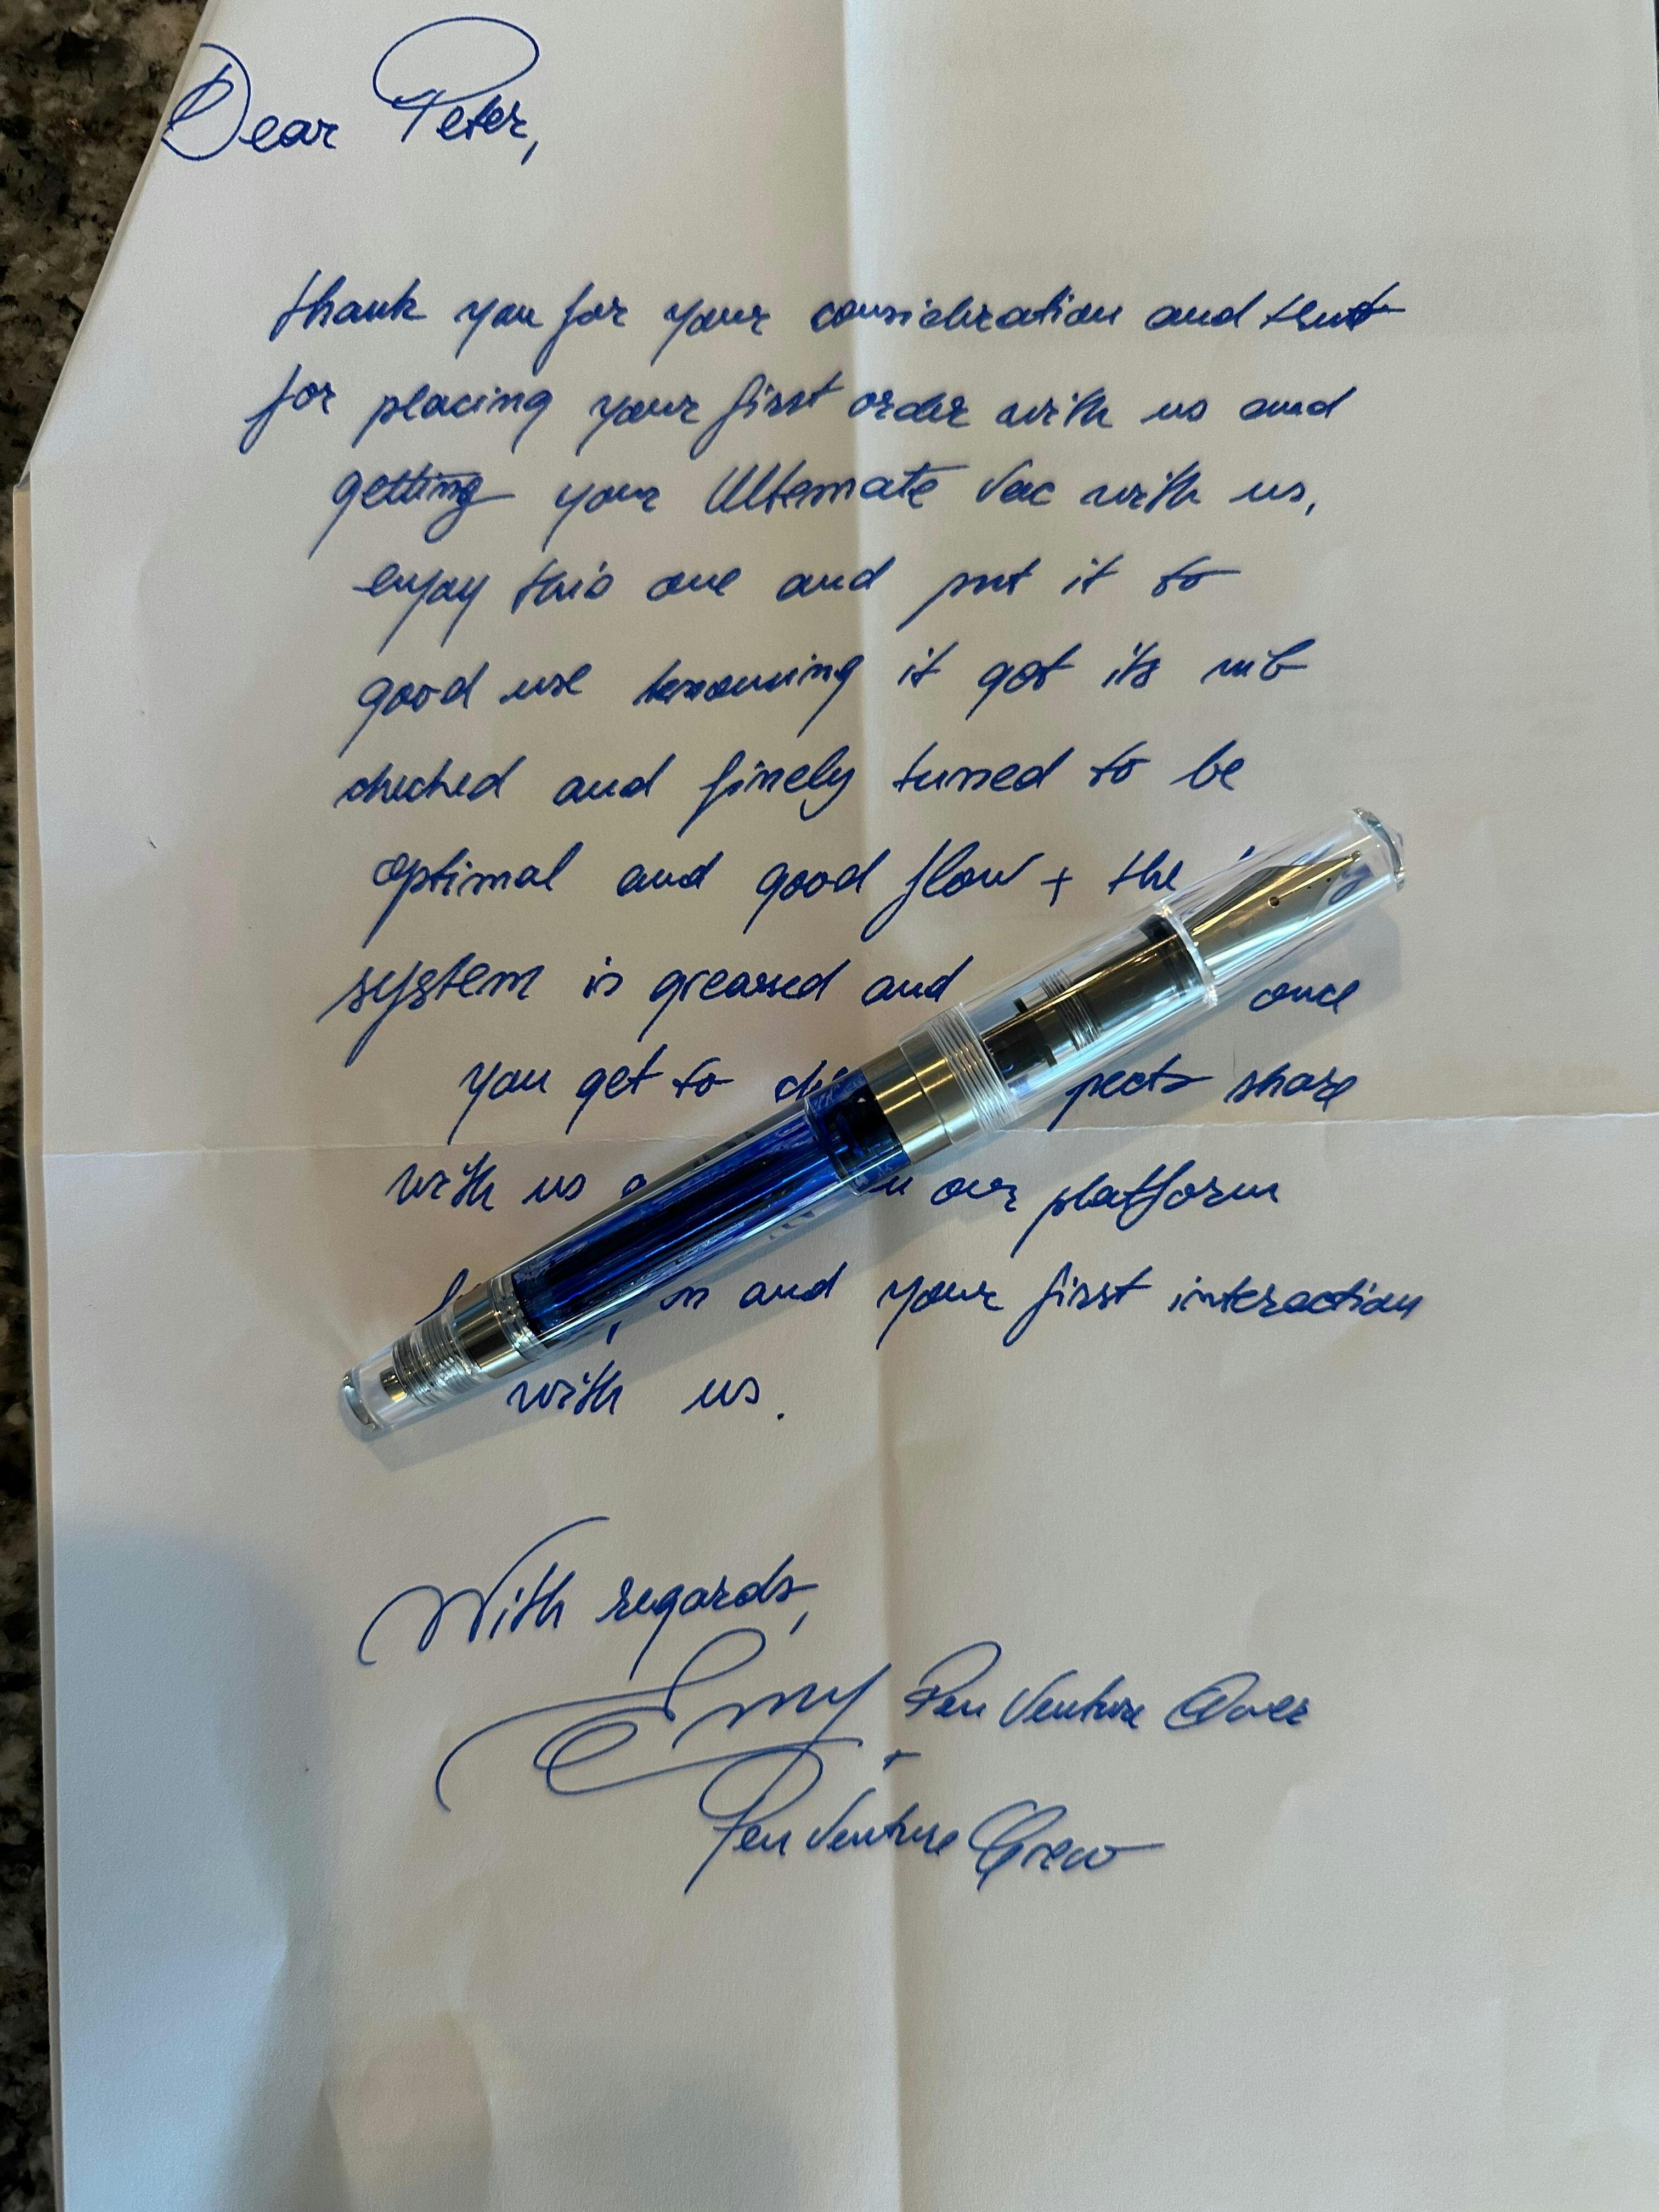 Dear Peter,
thank you for your consideration and trust
for placing your first order with us and
getting your Ultemate Vac with us,
enjoy this one and put it to
good use knowing it got its nib
checked and finely tuned to be
optimal and good flow + the
system is greased and once
you get to share
with us our platform
and your first interaction
with us.
With regards,
Emy Pen Venture Over
+
Pen Venture Crew